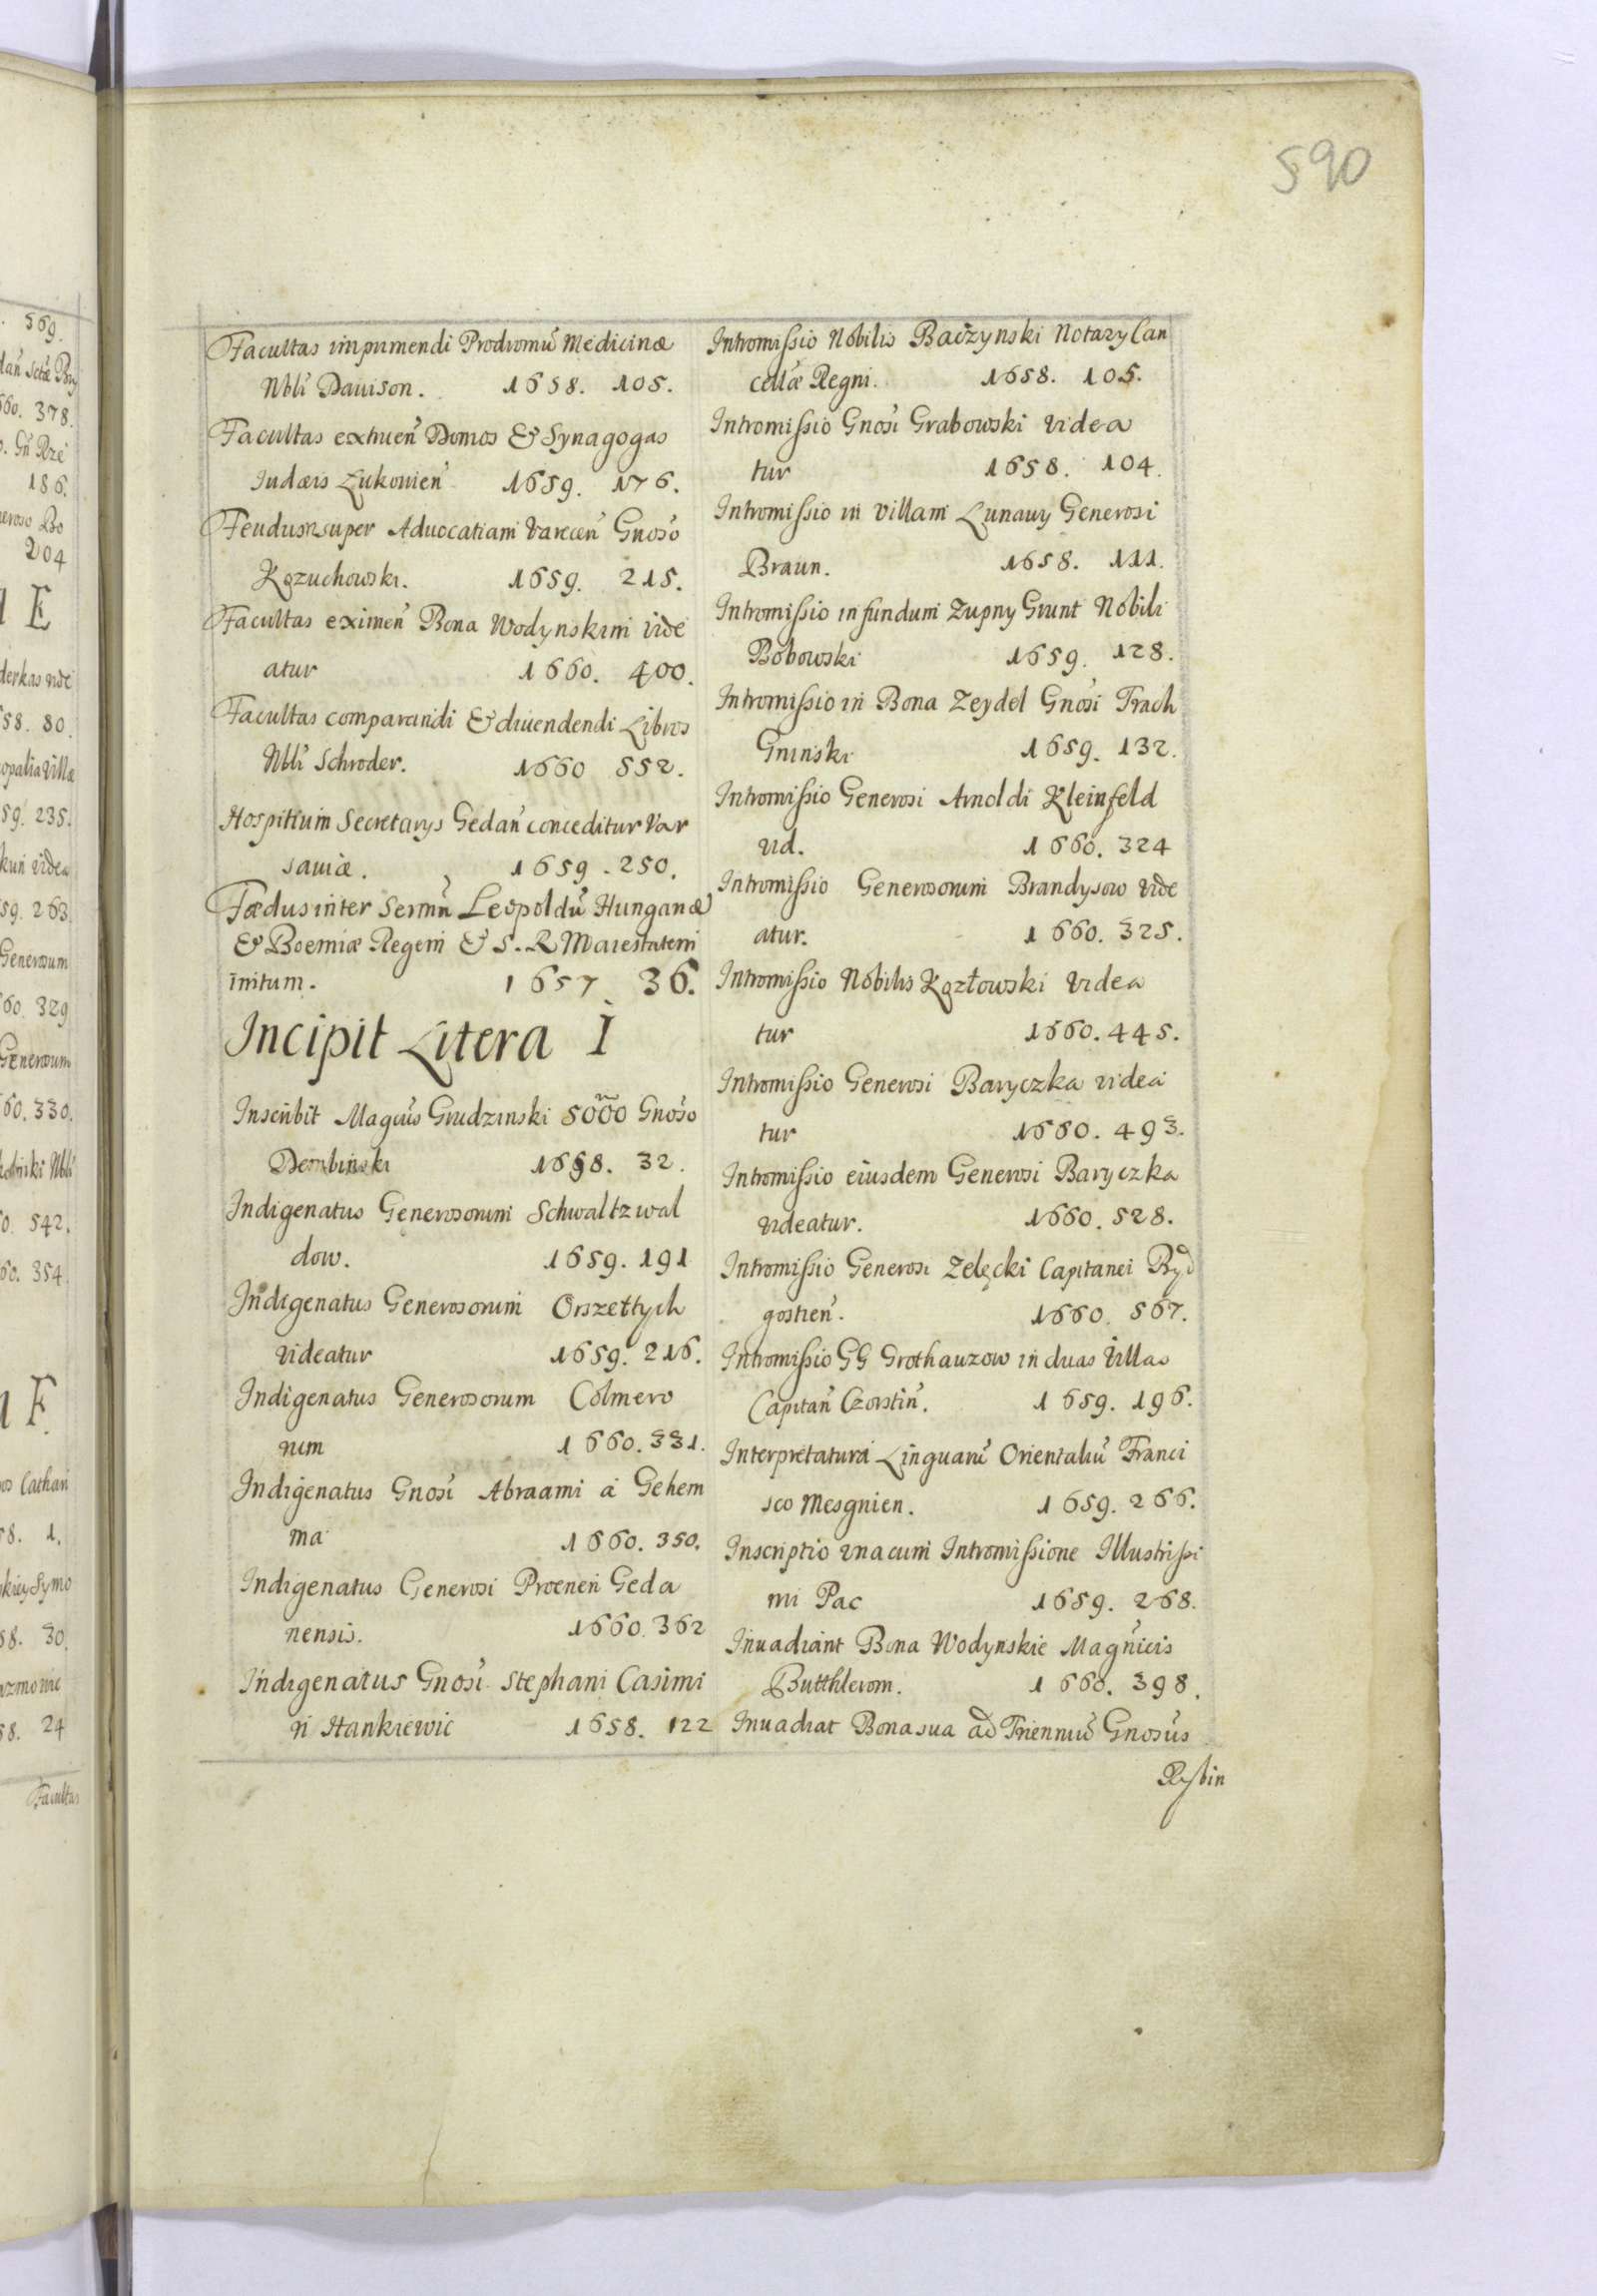 590
Facultas imprimendi Prodromũ Medicinæ
Nbli Dauison. 1658. 105.
Facultas extruen̄ Domos & Synagogas
Iudæis Lukouien̄ 1659. 176.
Feudum super Aduocatiam Varecen̄ Gnoso
Kozuchowski. 1659. 215.
Facultas eximen̄ Bona Wodynskim vide
atur 1660. 400.
Facultas comparandi & diuendendi Libros
Nbli Schroder. 1660 552.
Hospitium Secretarys Gedan̄ conceditur Var
sauiæ. 1659. 250.
Fædus inter Sermũ Leopoldũ Hungariæ
& Boemiæ Regem & S. R Maiestatem
initum. 1657 36.
Incipit Litera I
Inscribit Magcus Grudzinski 5000 Gnoso
Dembinski 1658. 32.
Indigenatus Generosorum Schwaltzwal
dow. 1659. 191
Indigenatus Generosorum Orszettych
videatur 1659. 216.
Indigenatus Generosorum Colmero
rum 1660. 331.
Indigenatus Gnosi Abraami a Gehem
ma 1660. 350.
Indigenatus Generosi Proenen Geda
nensis. 1660. 362
Indigenatus Gnosi Stephani Casimi
ri Hankiewic 1658. 122
Intromissio Nobilis Baczynski Notary Can
cellæ Regni. 1658. 105.
Intromissio Gnosi Grabowski videa
tur 1658. 104.
Intromissio in villam Lunawy Generosi
Braun. 1658. 111.
Intromissio in fundum Zupny Grunt Nobili
Bobowski 1659. 128.
Intromissio in Bona Zeydel Gnosi Trach
Gninski 1659. 132.
Intromissio Generosi Arnoldi Kleinfeld
vid. 1660. 324
Intromissio Generosorum Brandysow vide
atur. 1660. 325.
Intromissio Nobilis Kozłowski videa
tur 1660. 445.
Intromissio Generosi Baryczka videa
tur 1660. 493.
Intromissio eiusdem Generosi Baryczka
videatur. 1660. 528.
Intromissio Generosi Zelęcki Capitanei Byd
gostien̄. 1660. 567.
Intromissio GG Grothauzow in duas villas
Capitan̄ Czorstin̄. 1659. 196.
Interpretatura Linguarũ Orientaliũ Franci
sco Mesgnien. 1659. 266.
Inscriptio vna cum Intromissione Illustrissi
mi Pac 1659. 268.
Inuadiant Bona Wodynskie Magnicis
Butthlerom. 1660. 398.
Inuadiat Bona sua ad Trienniũ Gnosus
Rysbin